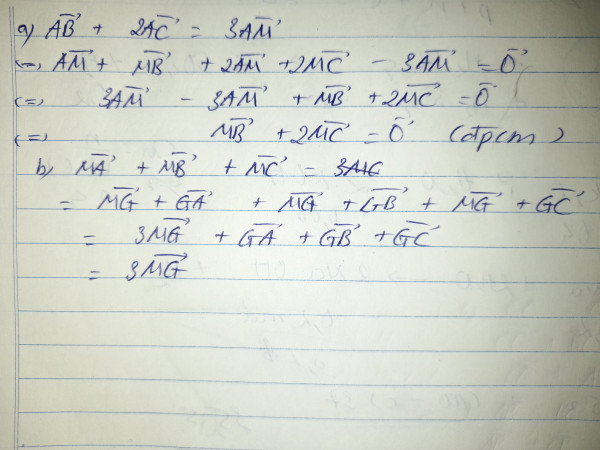 a) AB⃗ + 2AC⃗ = 3AM⃗
(=) AM⃗ + MB⃗ + 2AM⃗ + 2MC⃗ - 3AM⃗ = O⃗
(=) 3AM⃗ - 3AM⃗ + MB⃗ + 2MC⃗ = O⃗
(=) MB⃗ + 2MC⃗ = O⃗ (đpcm)
b) MA⃗ + MB⃗ + MC⃗ =
= MG⃗ + GA⃗ + MG⃗ + GB⃗ + MG⃗ + GC⃗
= 3MG⃗ + GA⃗ + GB⃗ + GC⃗
= 3MG⃗